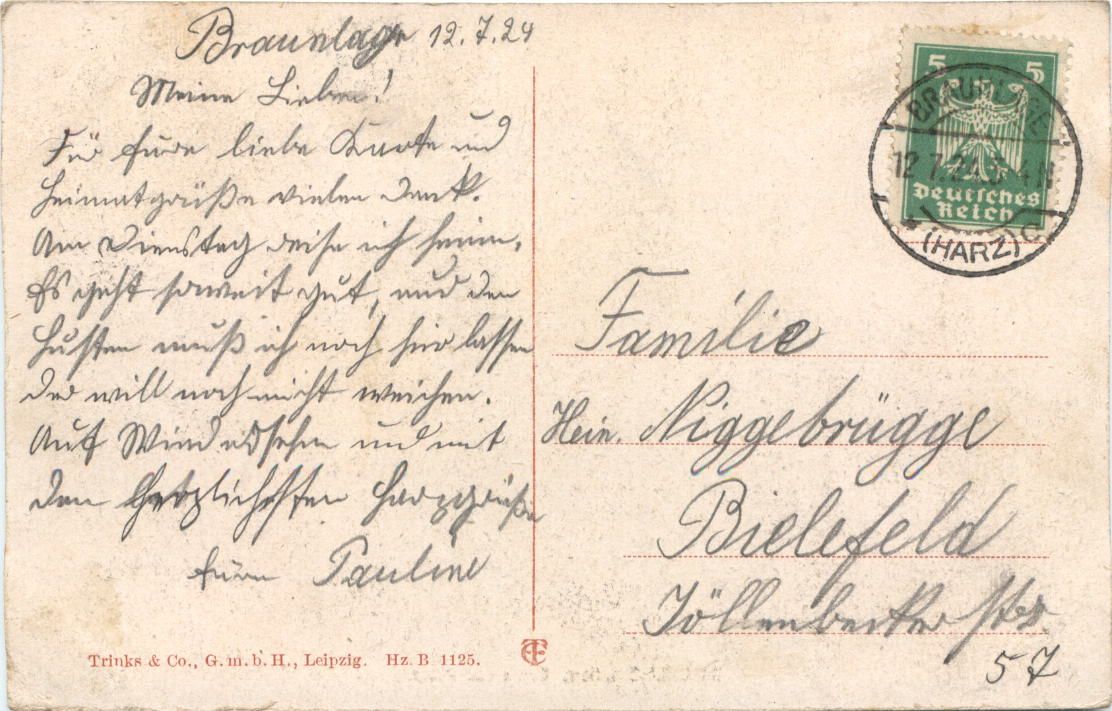 Braunlage 12.7.24
Meine Lieben!
Für Eure liebe Karte und
Heimatgrüße vielen Dank.
Am Dienstag reise ich heim.
Es geht soweit gut, und den
Husten muß ich noch hier lassen
der will noch nicht weichen.
Auf Wiedersehn und mit
den herzlichsten Harzgrüße
Eure Pauline
Trinks & Co., G. m. b. H., Leipzig. Hz. B 1125.
5 5
Deutsches
Reich
BRAUNLAGE
12.7.2
(HARZ)
Familie
Hein. Niggebrügge
Bielefeld
Jöllenbecker Str
57